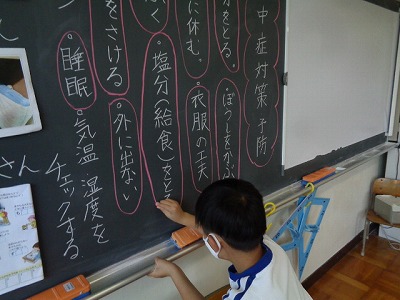 中症対策 予防
をとる。
ぼうしをかぶ
に休む。
衣服の工夫
塩分(給食)をと
をさける
外に出ない
睡眠
気温 湿度を
チェックする
さん